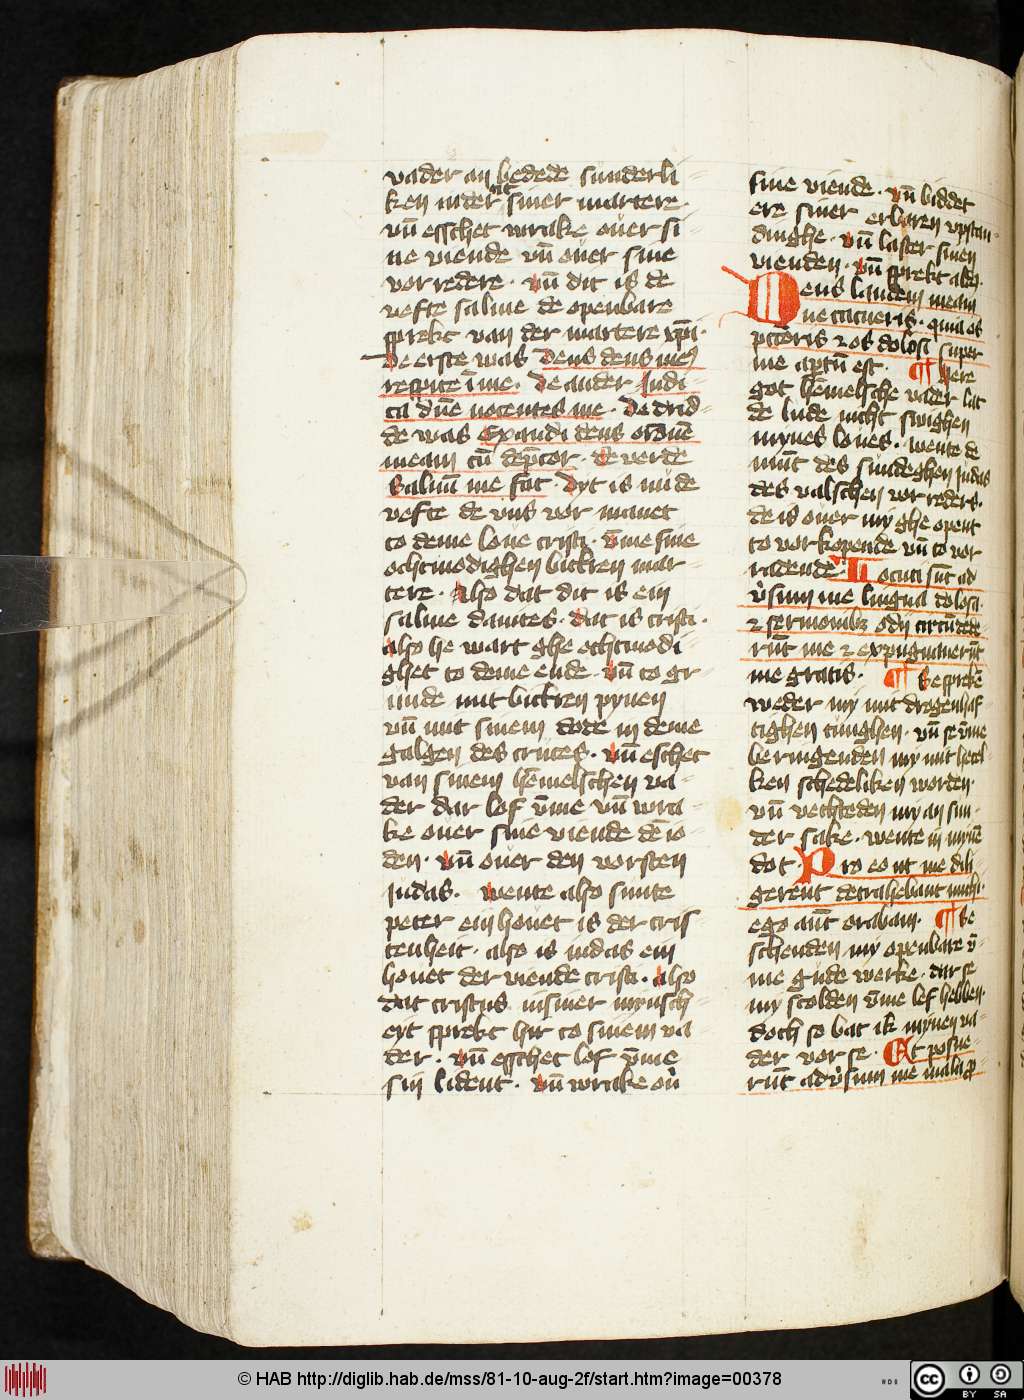 vader an bedede sunderli
ken nider siner martere·
vn̄ esschet wrake ouer si
ne viende vn̄ ouer sine
vorredere· vn̄ dit is de
vefte salme de openbare
sprekt van der martere xp̄i·
De erste was Deus deus me9
respice ī me· De ander Judi
ca dn̄e nocentes me· De drid
de was Exaudi deus oronē
meam cū dep̄cor· de verde
Saluū me fac· Dyt is nu de
vefte de vns vor manet
to deme loue cristi· v̄me sine
ochtmodighen bittren mar
tere· also dat dit is ein
salme dauites· dat is cristi·
also he wart ghe ochtmodi
ghet to deme ende· vn̄ to gr
unde mit bittren pynen
vn̄ mit sinem dode in deme
galgen des cruces· vn̄ eschet
van sinem hēmelschen va
der dar lof v̄me vn̄ wra
ke ouer sine viende dē io
den· vn̄ ouer den vorsten
judas· wente also sunte
peter ein houet is der cris
tenheit· also is iudas ein
houet der viende cristi· also
dat cristus in siner mynsch
eyt sprekt hir to sinem va
der· vn̄ esschet lof v̄me
sin lident· vn̄ wrake ou̓
sine viende· vn̄ biddet
ere siner erbaren vpstan
dinghe· vn̄ laster sinen
vienden· vn̄ sprekt aldꝰ·
Deus laudem meam
ne tacueris· quia os
pctōris ⁊ os dolosi super
me aptū est· ¶ Here
got hēmelsche vader lat
de lude nicht swighen
mynes loues· wente de
mūt des sundeghen judas
des valschen vorreders·
de is ouer my ghe opent
to vorkopende vn̄ to vor
radende· Locuti sūt ad
u̓sum me lingua dolosa·
⁊ sermonibꝫ odij circūdede
rūt me ⁊ expugnauerūt
me gratis· ¶ Se spreken
weder my mit drogenhaf
tighen tunghen· vn̄ se v̄me
beringenden my mit hetel
ken schedeliken worden·
vn̄ vechteden my an sun
der sake· wente in mynē
dot· Pro eo ut me dili
gerent detrahebant michi·
ego aūt orabam· ¶ Se
schenden my openbare v̄
me gude werke· dar se
my scolden v̄me lef hebben·
doch so bat ik mynen va
der vor se· Et posue
rūt adu̓sum me mala ꝓ
© HAB http://diglib.hab.de/mss/81-10-aug-2f/start.htm?image=00378
cc BY SA